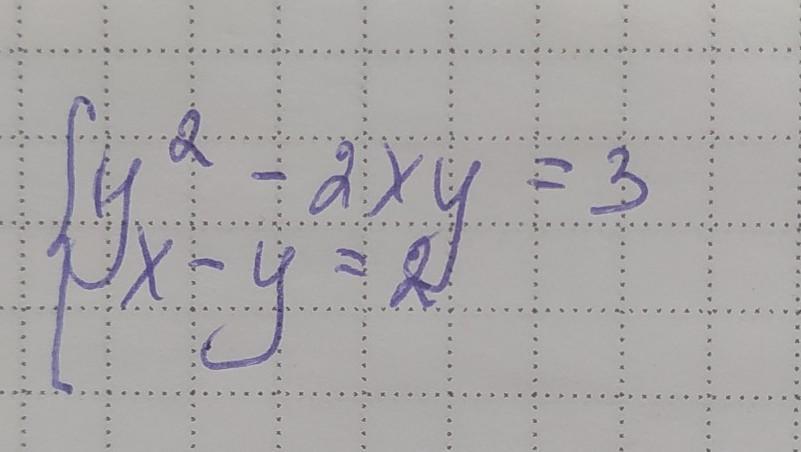 {y² - 2xy = 3
x - y = 2